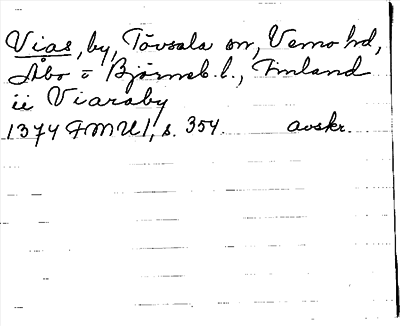 Vias, by, Tövsala sn, Vemo hd,
Åbo o Björneb. l., Finland
ii Viaraby
1374 FMU 1, s. 354. avskr.